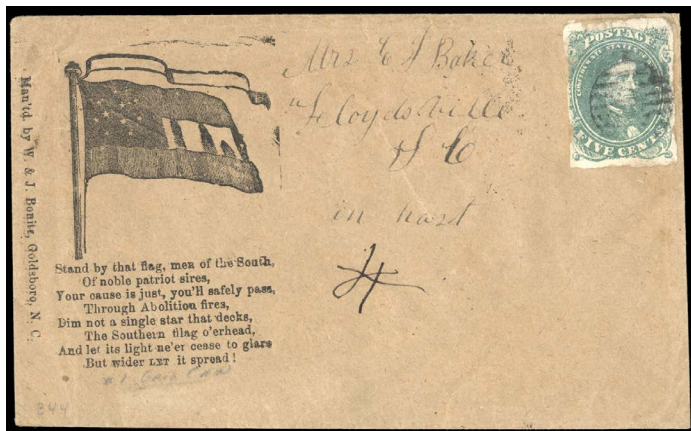 Man'd. by W. & J. Bonitz, Goldsboro, N. C.
Stand by that flag, men of the South,
Of noble patriot sires,
Your cause is just, you'll safely pass,
Through Abolition fires,
Dim not a single star that decks,
The Southern fllag o'erhead,
And let its light ne'er cease to glare
But wider LET it spread!
344
Mrs E J Baker
Lloydsville
S C
in hast
POSTAGE
CONFEDERATE STATES
FIVE CENTS